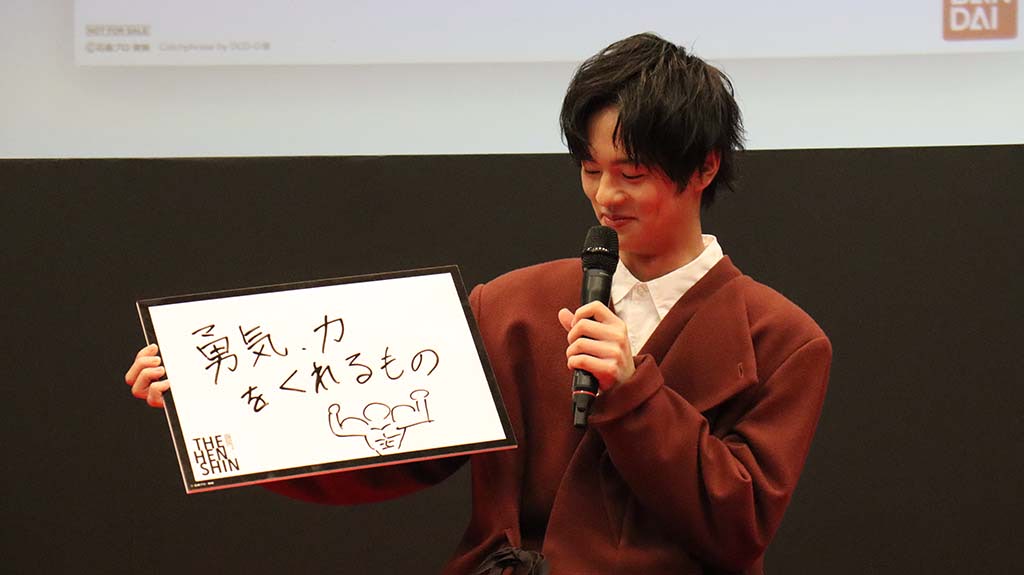 NOT FOR SALE
BAN
DAI
勇気、力
をくれるもの
THE
HEN
SHIN